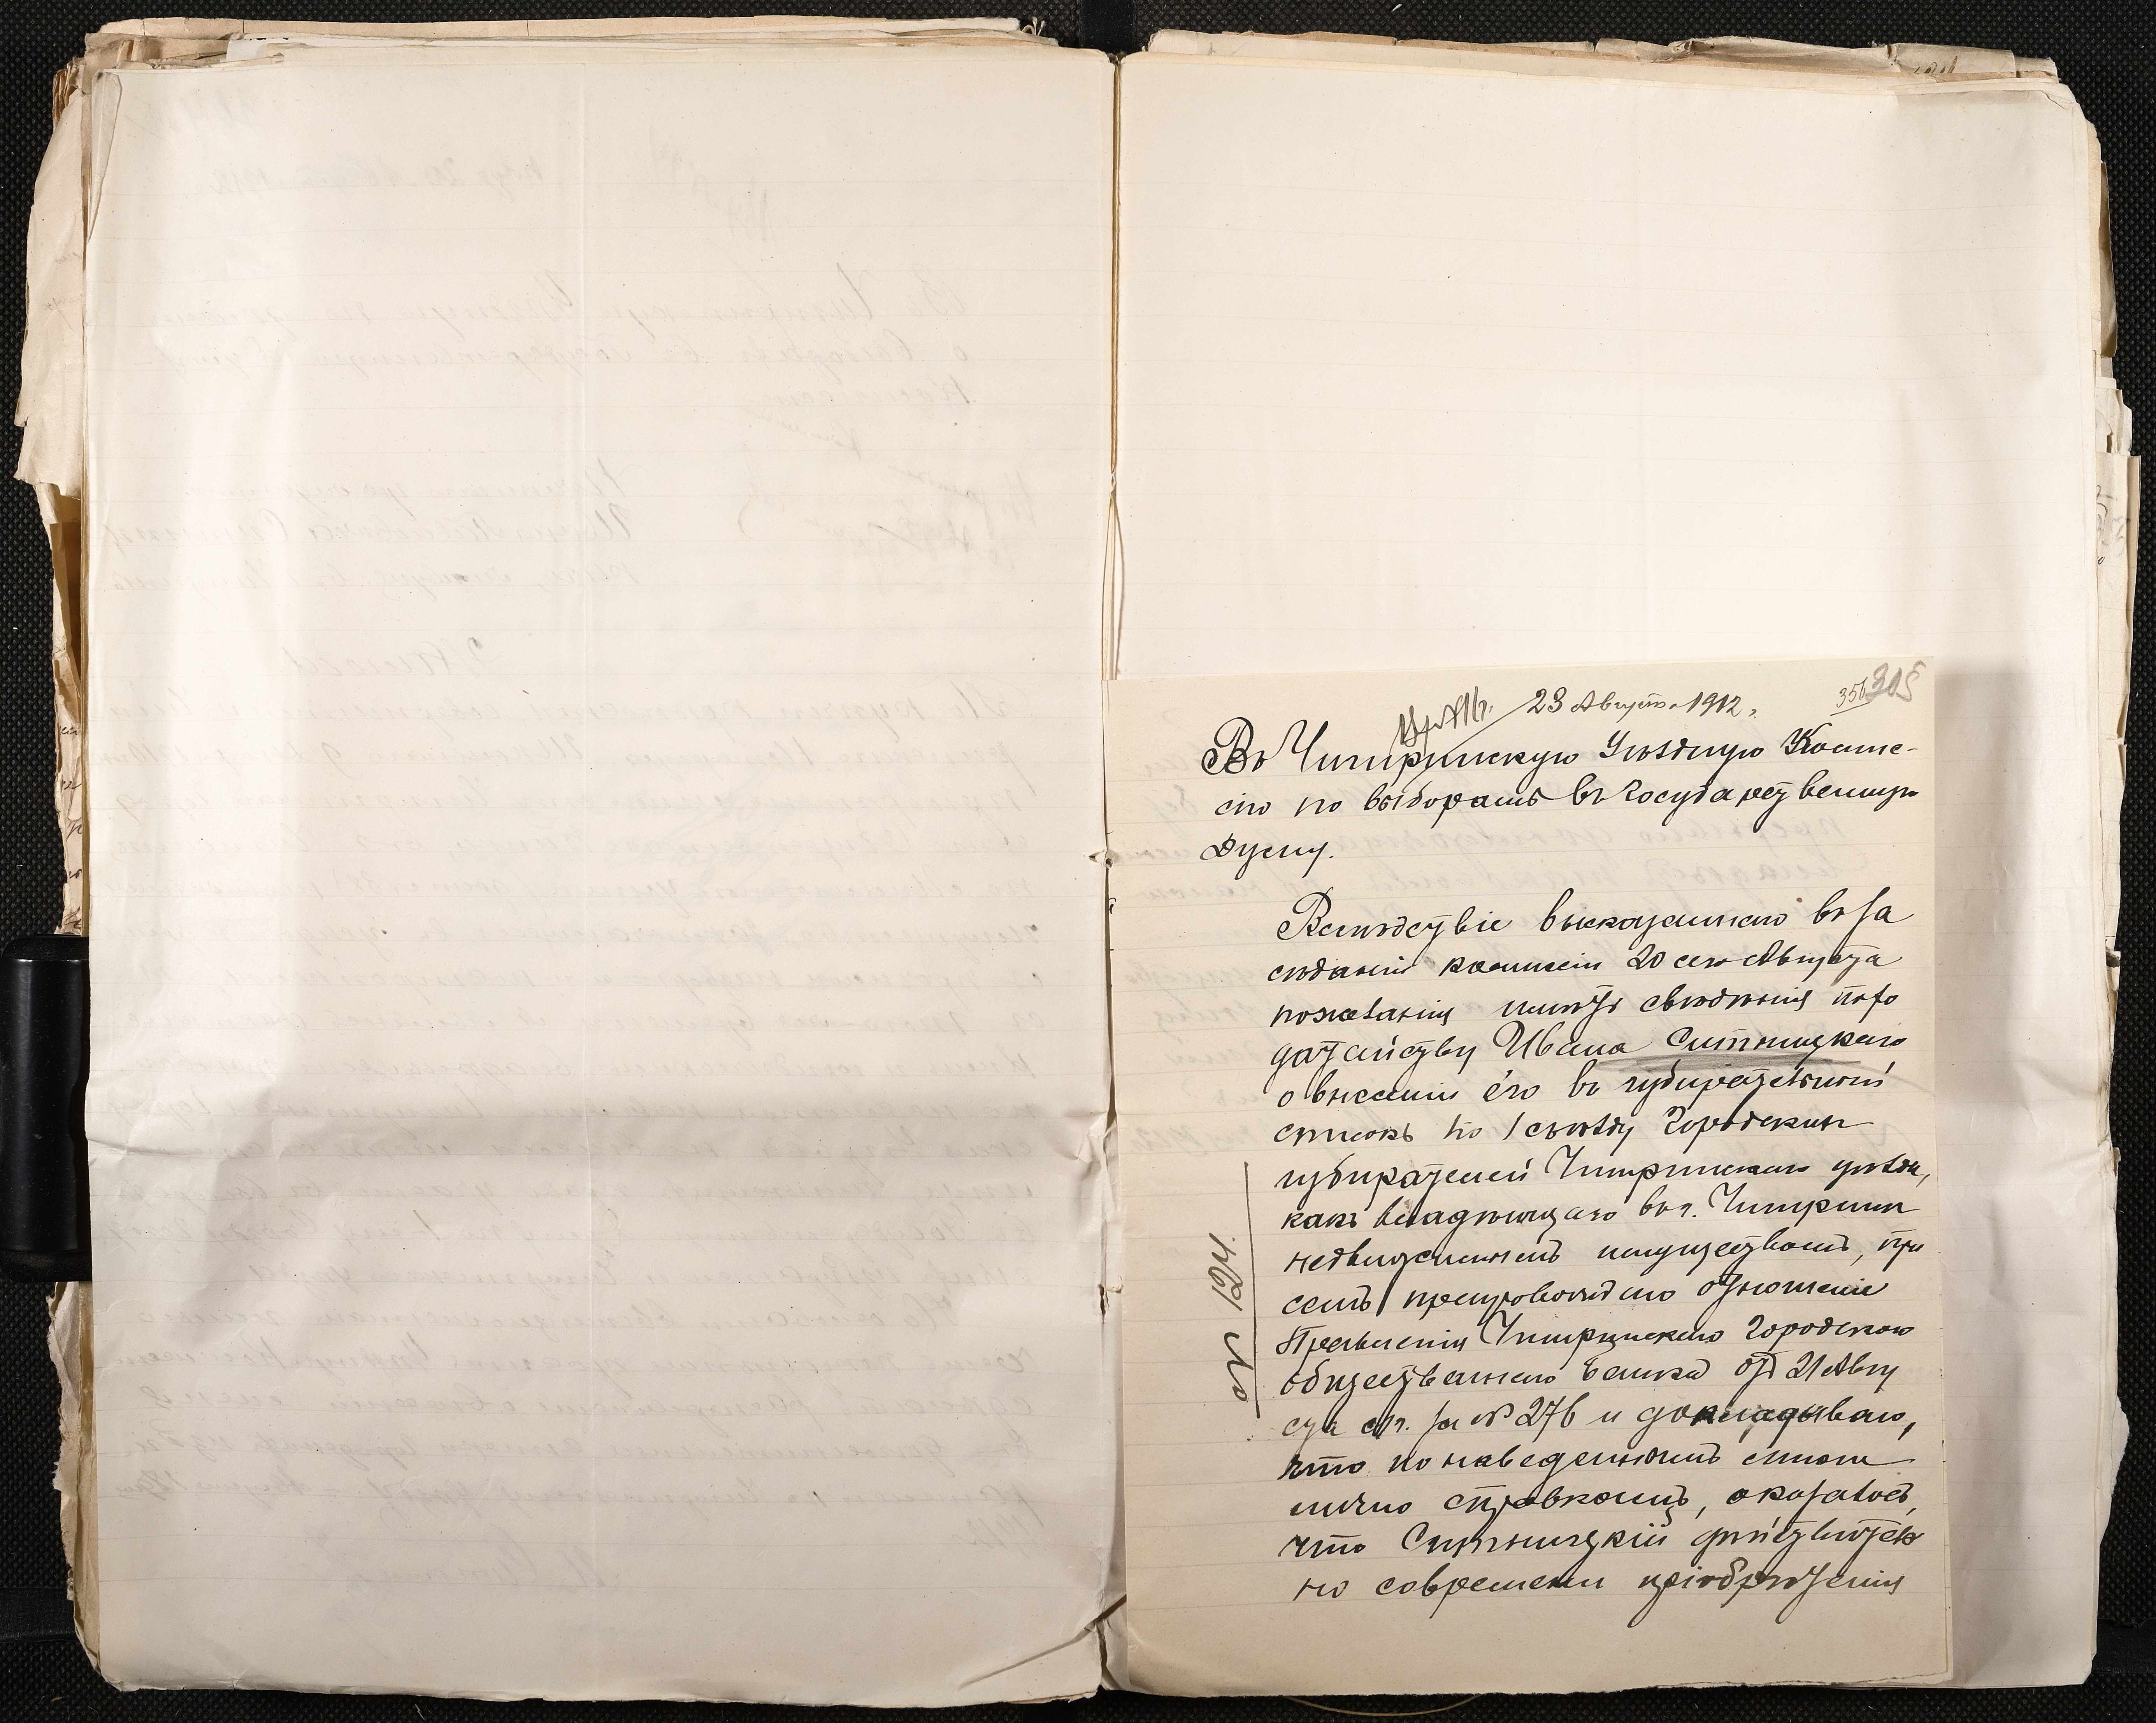 23 Августа 1912 г.
356 305
Въ Чигиринскую Уѣздную Комис-
сію по выборамъ въ Государственную
Думу.
Вслѣдствіе высказаннаго въ за
сѣданіи комиссіи 20 сего Августа
пожеланія имѣть свѣдѣнія по хо
датайству Ивана Ситницкаго
о внесеніи его въ избирательный
списокъ по 1 съѣзду Городскихъ
избирателей Чигиринскаго уѣзда,
какъ владѣющаго въ г. Чигиринѣ
недвижимымъ имуществомъ, при
семъ препровождаю отношеніе
Правленія Чигиринскаго Городского
общественнаго банка отъ 21 Авгу
ста с/г. за № 276 и докладываю,
что по наведеннымъ мною
лично справкамъ, оказалось,
что Ситницкій дѣйствитель
но со времени пріобрѣтенія
№ 124.